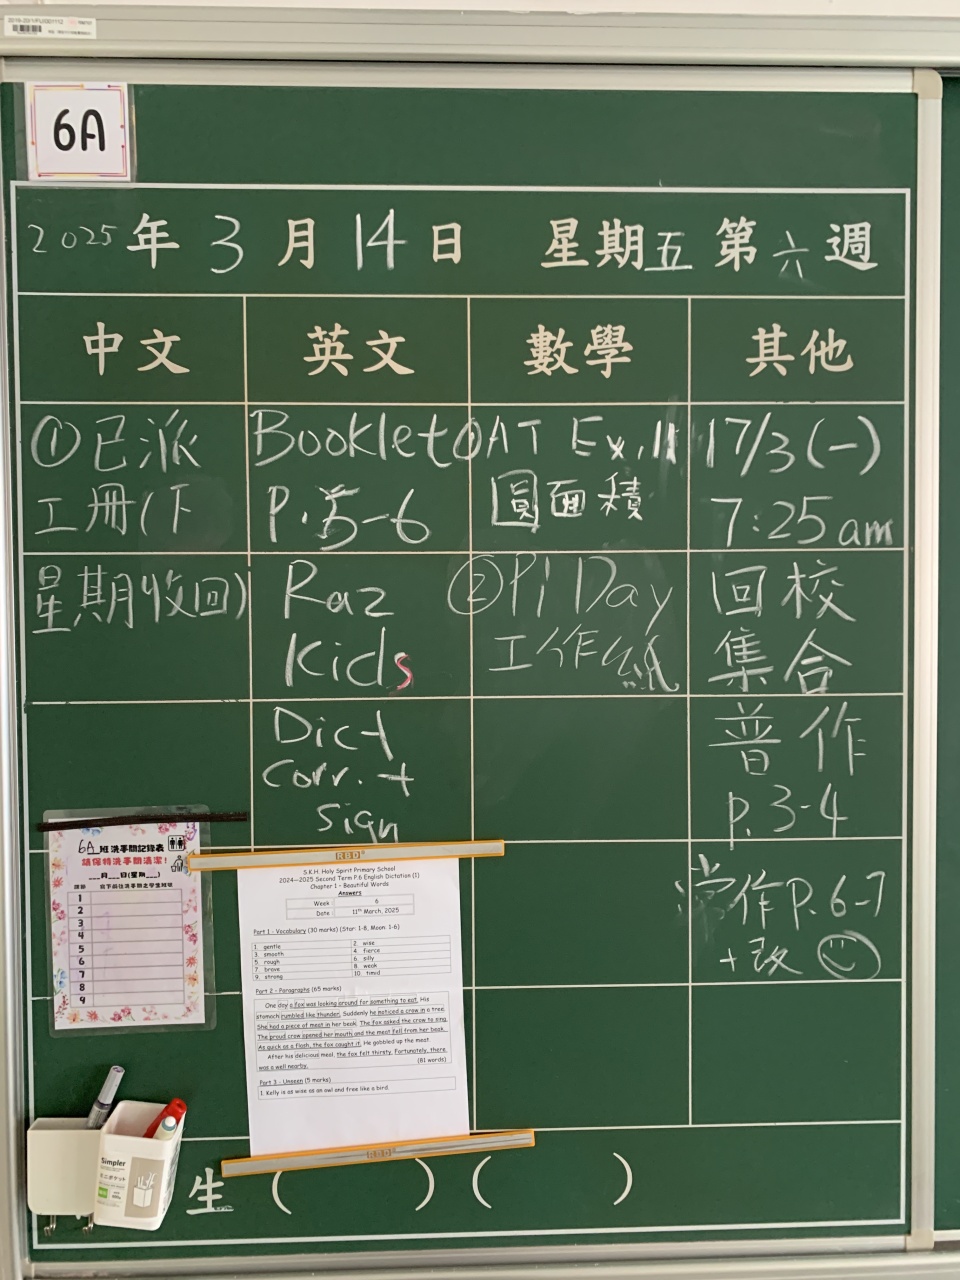 6A
2025年 3 月 14 日 星期五 第六週
中文 英文 數學 其他
①已派
工冊(下
星期收回)
Booklet
P.5-6
Raz
Kids
Dict
Corr. +
Sign
①AT Ex.11
圓面積
②Pi Day
工作紙
17/3(一)
7:25am
回校
集合
普作
p.3-4
常作P.6-7
+改
6A 班 洗手間記錄表
請保持洗手間清潔!
___月___日(星期___)
課節 以下前往洗手間之學生班號
1
2
3
4
5
6
7
8
9
RBD
S.K.H. Holy Spirit Primary School
2024—2025 Second Term P.6 English Dictation (1)
Chapter 1 - Beautiful Words
Answers
Week 6
Date 11th March, 2025
Part 1 - Vocabulary (30 marks) (Star: 1-8, Moon: 1-6)
1. gentle 2. wise
3. smooth 4. fierce
5. rough 6. silly
7. brave 8. weak
9. strong 10. timid
Part 2 - Paragraphs (65 marks)
One day a fox was looking around for something to eat. His
stomach rumbled like thunder. Suddenly he noticed a crow in a tree.
She had a piece of meat in her beak. The fox asked the crow to sing.
The proud crow opened her mouth and the meat fell from her beak.
As quick as a flash, the fox caught it. He gobbled up the meat.
After his delicious meal, the fox felt thirsty. Fortunately, there
was a well nearby. (81 words)
Part 3 - Unseen (5 marks)
1. Kelly is as wise as an owl and free like a bird.
RBD
Simpler
ミニポケット
生 ( ) ( )